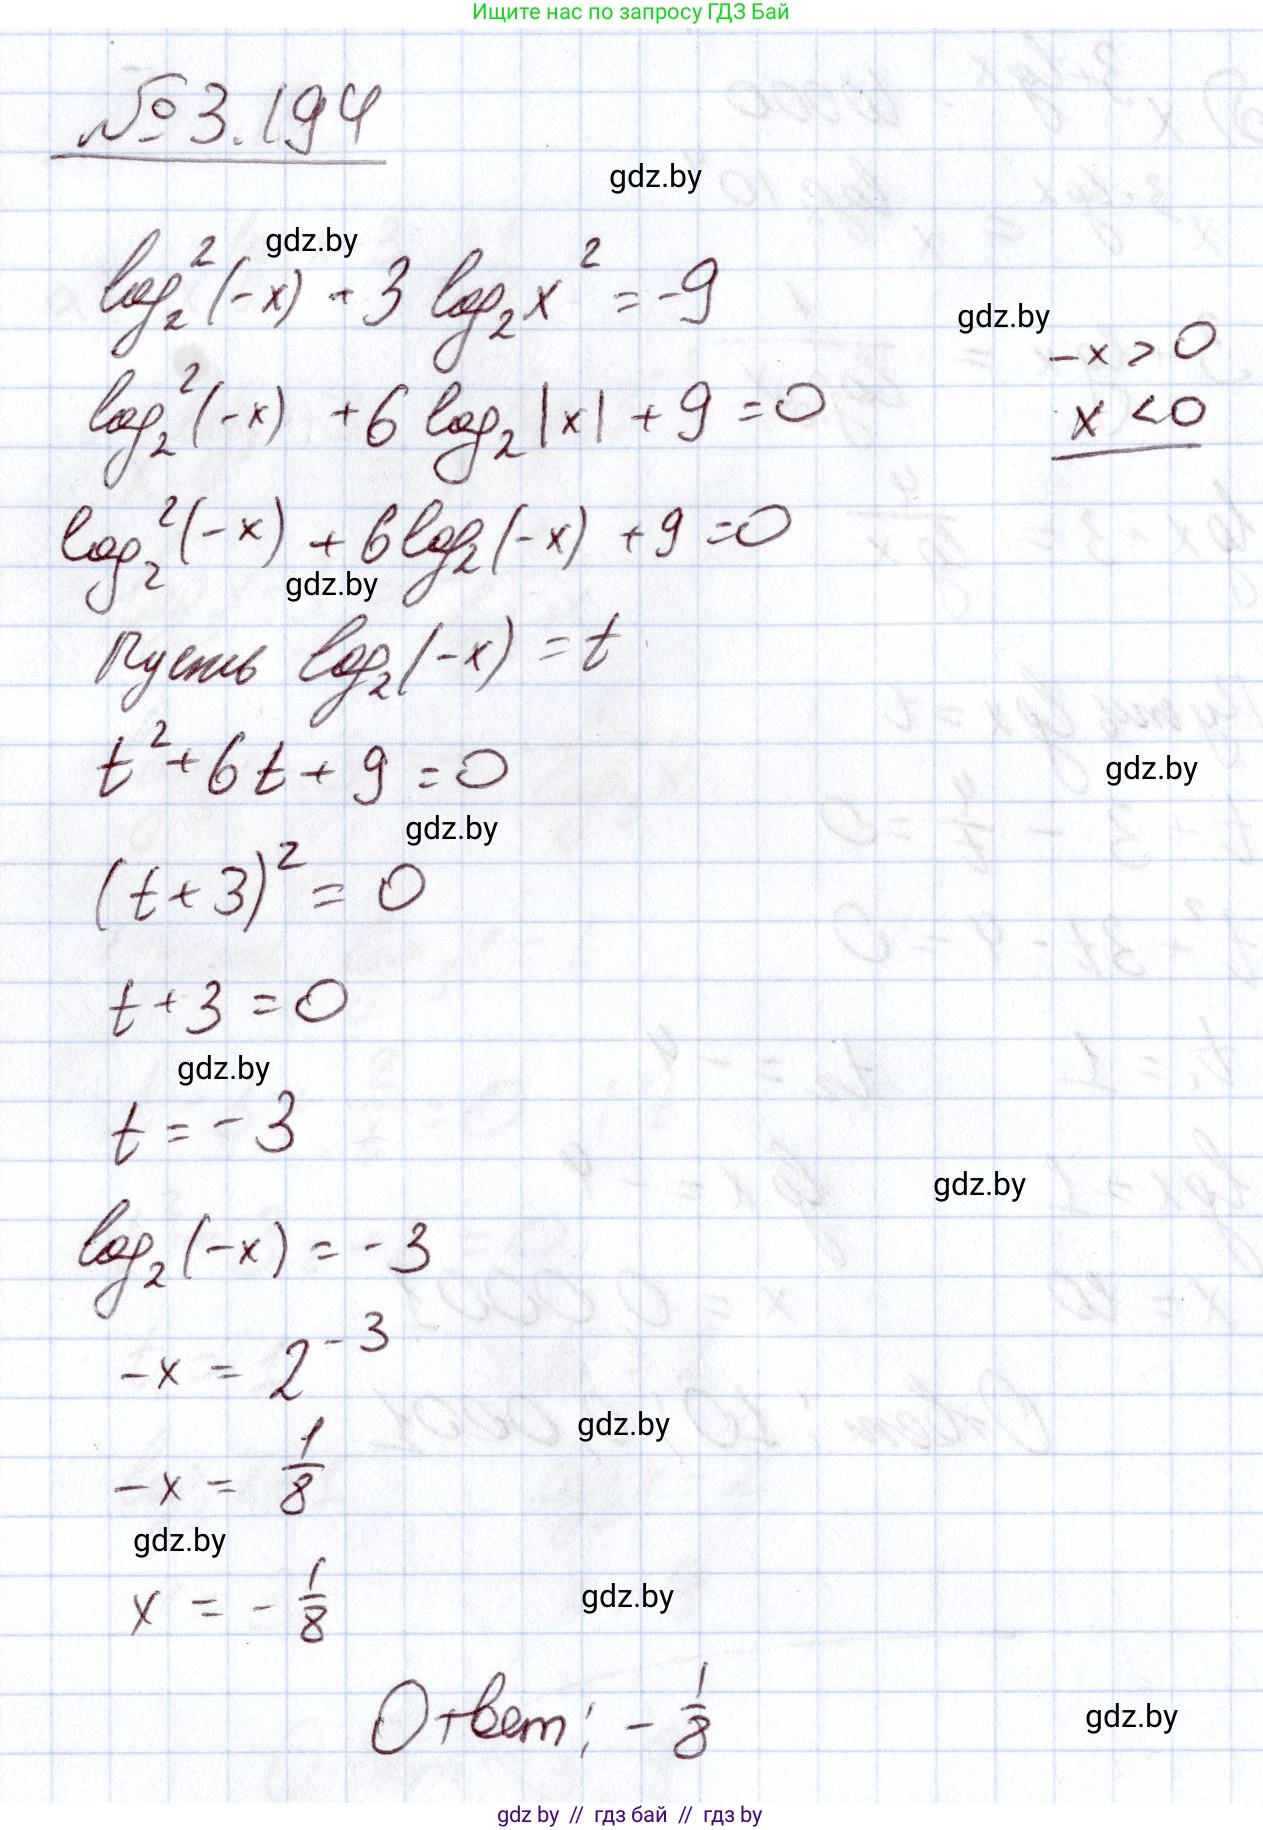 Ищите нас по запросу ГДЗ Бай
№3.194
gdz.by
gdz.by
log₂²(-x) + 3 log₂x² = -9
gdz.by
-x > 0
log₂²(-x) + 6 log₂|x| + 9 = 0
x < 0
log₂²(-x) + 6 log₂(-x) + 9 = 0
gdz.by
Пусть log₂(-x) = t
t² + 6t + 9 = 0
gdz.by
gdz.by
(t + 3)² = 0
t + 3 = 0
gdz.by
t = -3
gdz.by
log₂(-x) = -3
-x = 2⁻³
gdz.by
-x = 1/8
gdz.by
x = - 1/8
gdz.by
Ответ: - 1/8
gdz.by
gdz by // гдз бай // гдз by